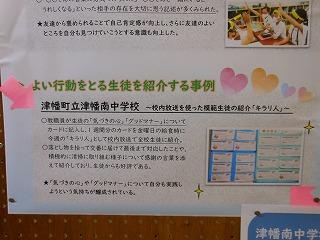 うれしくなる」といった相手の存在を大切に思う記述が多くみられた。
★友達から褒められることで自己肯定感が向上し、さらに友達のよい
ところを自分も見つけていこうとする意識も向上した。
よい行動をとる生徒を紹介する事例
津幡町立津幡南中学校 ～校内放送を使った模範生徒の紹介「キラリ人」～
○教職員が生徒の「気づきの心」「グッドマナー」について
カードに記入し、1週間分のカードを金曜日の給食時に
今週の「キラリ人」として校内放送で全校生徒に紹介。
○落とし物を拾って交番に届けて最後まで対応したことや、
積極的に清掃に取り組む様子について感謝の言葉を添
えて紹介しており、生徒からも好評である。
★「気づきの心」や「グッドマナー」について自分も実践し
ようという気持ちが醸成されている。
津幡南中学